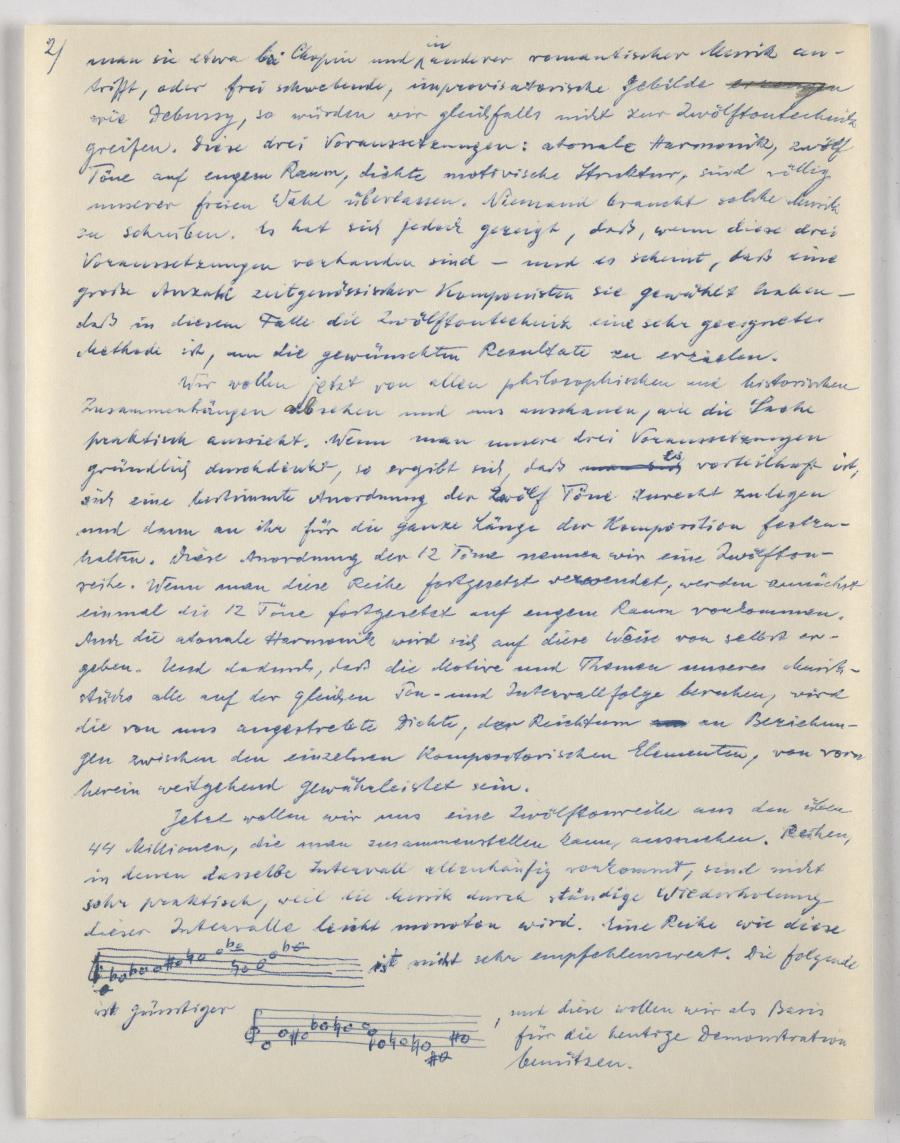 2/
man sie etwa bei Chopin und in anderer romantischer Musik an-
trifft, oder frei schwebende, improvisatorische Gebilde
wie Debussy, so würden wir gleichfalls nicht zur Zwölftontechnik
greifen. Diese drei Voraussetzungen: atonale Harmonik, zwölf
Töne auf engem Raum, dichte motivische Struktur, sind völlig
unserer freien Wahl überlassen. Niemand braucht solche Musik
zu schreiben. Es hat sich jedoch gezeigt, daß, wenn diese drei
Voraussetzungen vorhanden sind – und es scheint, daß eine
große Anzahl zeitgenössischer Komponisten sie gewählt haben –
daß in diesem Falle die Zwölftontechnik eine sehr geeignete
Methode ist, um die gewünschten Resultate zu erzielen.
Wir wollen jetzt von allen philosophischen und historischen
Zusammenhängen absehen und uns anschauen, wie die Sache
praktisch aussieht. Wenn man unsere drei Voraussetzungen
gründlich durchdenkt, so ergibt sich, daß es vorteilhaft ist,
sich eine bestimmte Anordnung der Zwölf Töne zurecht zu legen
und dann an ihr für die ganze Länge der Komposition festzu-
halten. Diese Anordnung der 12 Töne nennen wir eine Zwölfton-
reihe. Wenn man diese Reihe fortgesetzt verwendet, werden zunächst
einmal die 12 Töne fortgesetzt auf engem Raum vorkommen.
Auch die atonale Harmonik wird sich auf diese Weise von selbst er-
geben. Und dadurch, daß die Motive und Themen unseres Musik-
stücks alle auf der gleichen Ton- und Intervallfolge beruhen, wird
die von uns angestrebte Dichte, der Reichtum an Beziehun-
gen zwischen den einzelnen kompositorischen Elementen, von vorn
herein weitgehend gewährleistet sein.
Jetzt wollen wir uns eine Zwölftonreihe aus den über
44 Millionen, die man zusammenstellen kann, aussuchen. Reihen,
in denen dasselbe Intervall allzuhäufig vorkommt, sind nicht
sehr praktisch, weil die Musik durch ständige Wiederholung
dieser Intervalle leicht monoton wird. Eine Reihe wie diese
ist nicht sehr empfehlenswert. Die folgende
ist günstiger
, und diese wollen wir als Basis
für die heutige Demonstration
benützen.